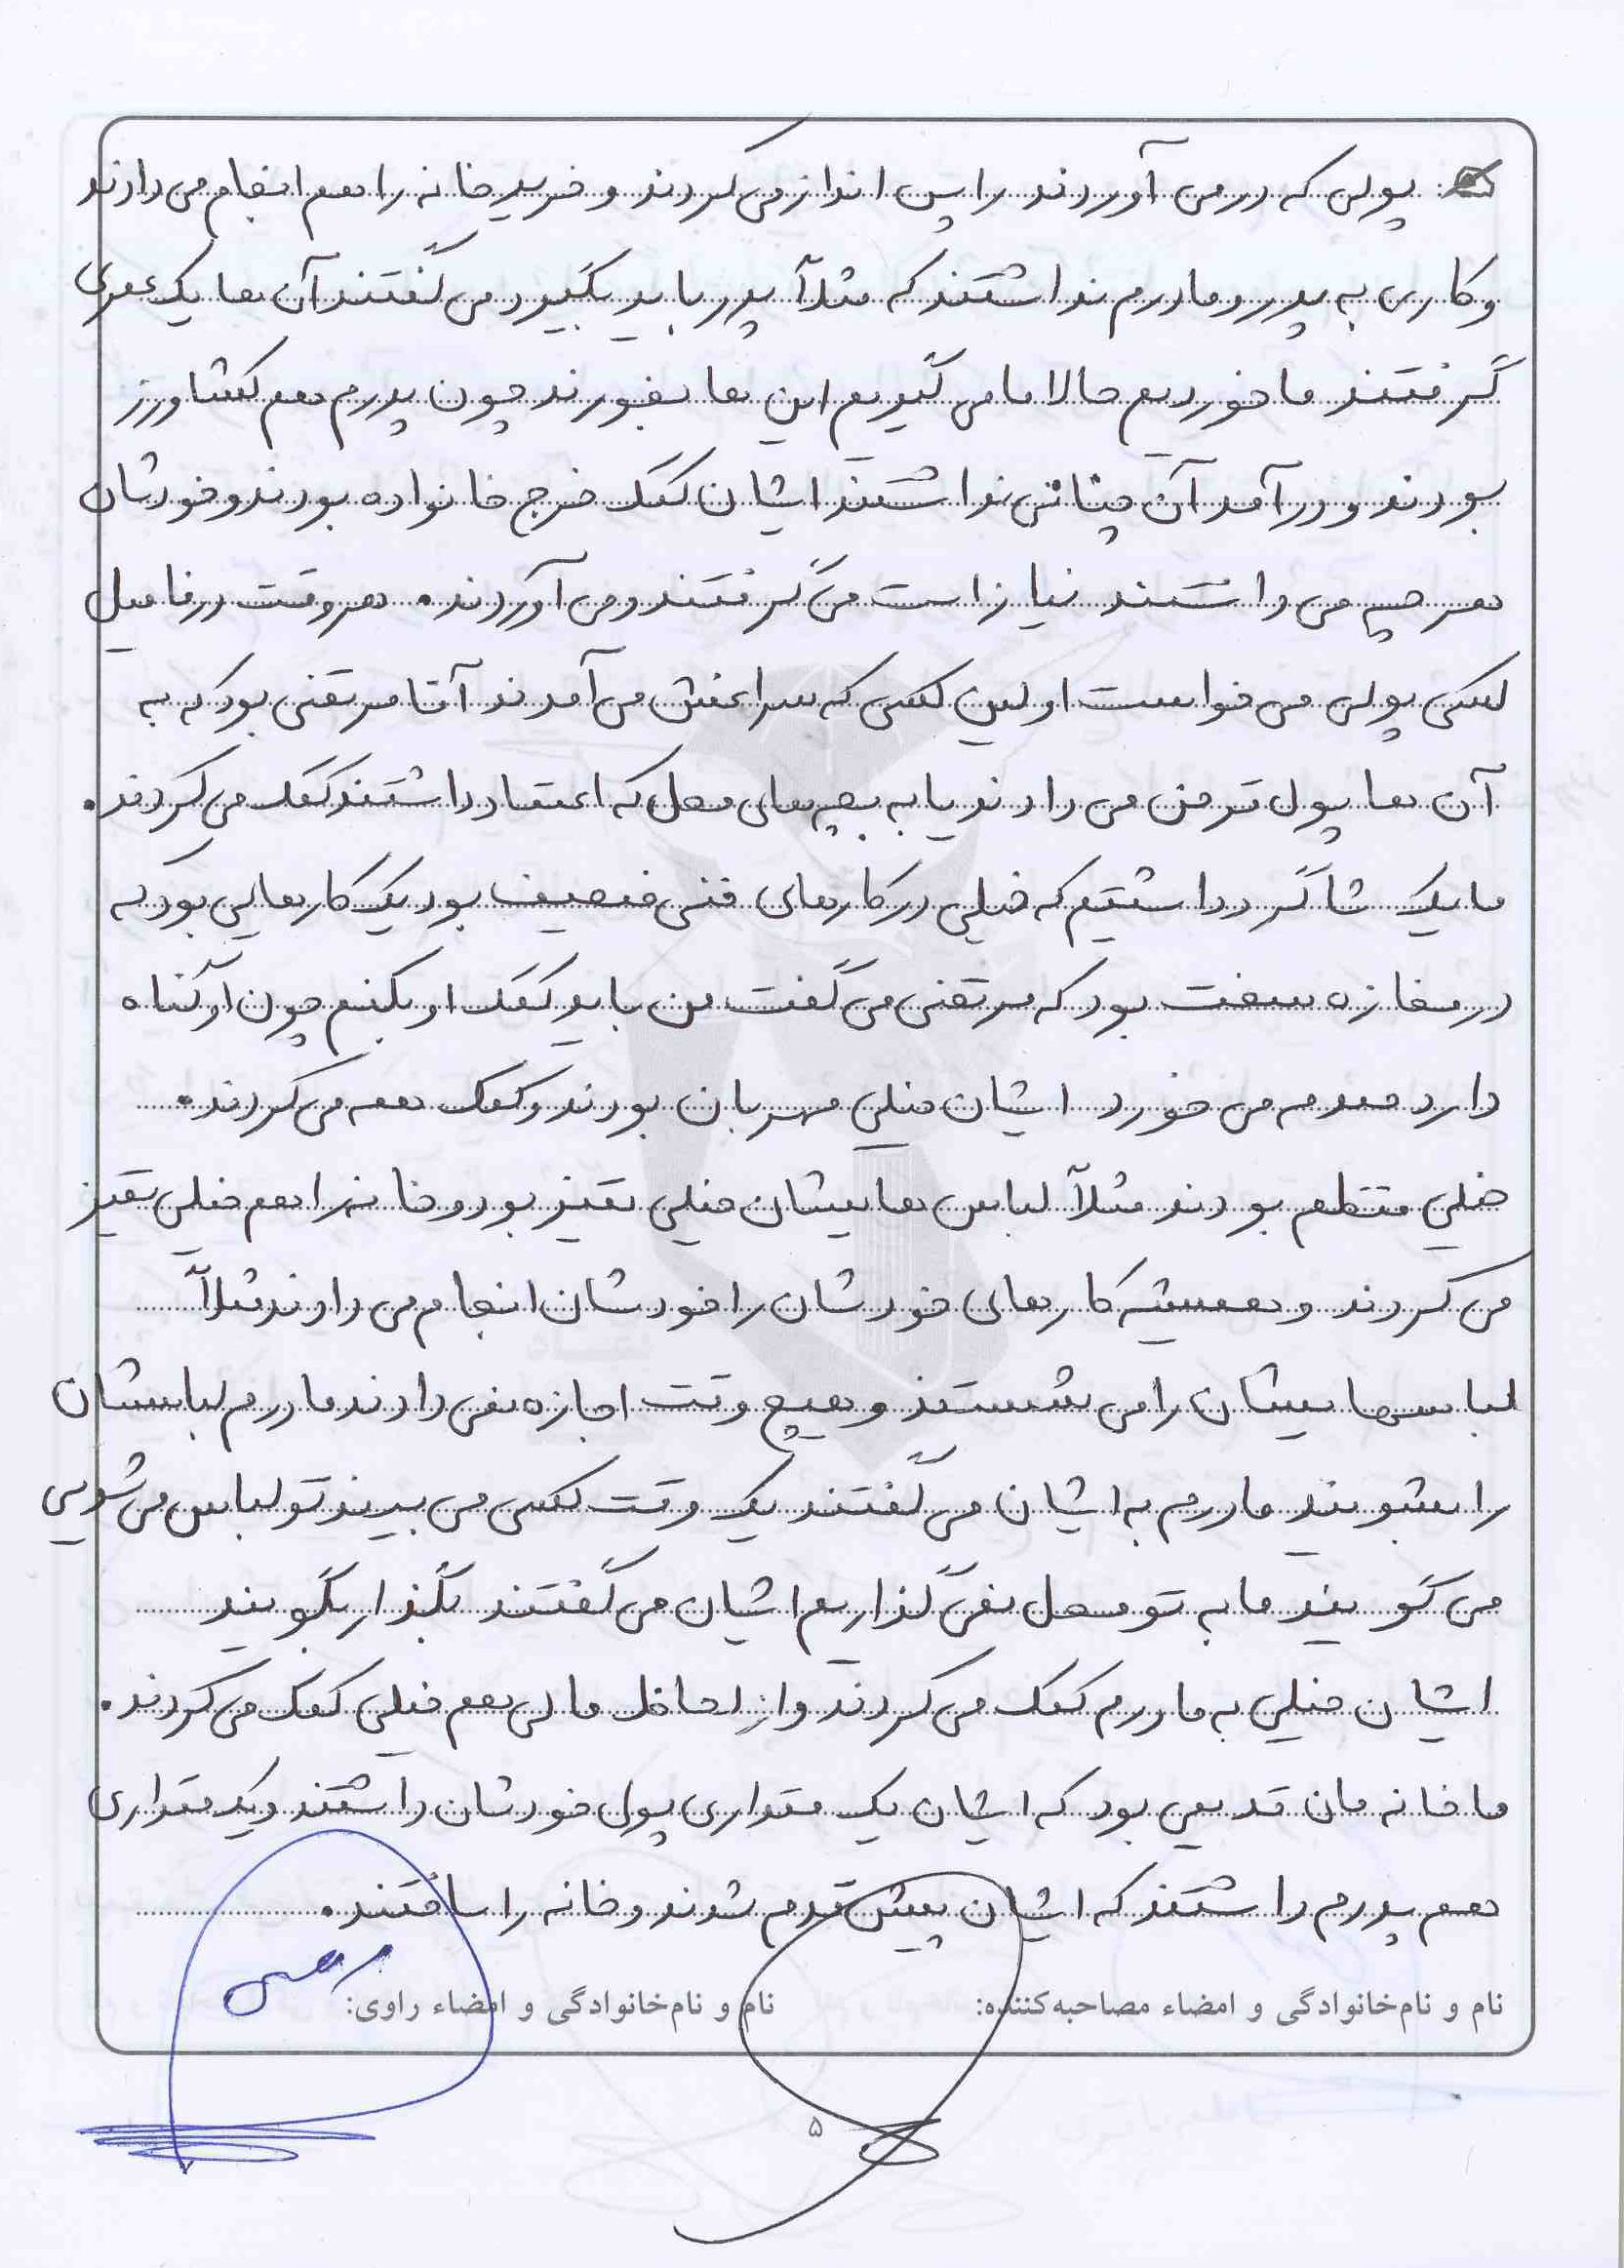 پولی که در می آوردند را پس انداز می کردند و خرید خانه را هم انجام می دادند
و کاری به پدر و مادرم نداشتند که مثلاً پدر باید بگیرد می گفتند آن ها یک عمری
گرفتند ما خوردیم حالا ما می گیریم این ها بخورند چون پدرم هم کشاورز
بودند و درآمد آن چنانی نداشتند ایشان کمک خرج خانواده بودند و خودشان
هر چه می دانستند نیاز است می گرفتند و می آوردند. هر وقت در فامیل
کسی پولی می خواست اولین کسی که سراغش می آمدند آقا مرتضی بود که به
آن ها پول قرض می دادند یا به بچه های محل که اعتماد داشتند کمک می کردند.
ما یک شاگرد داشتیم که خیلی در کارهای فنی ضعیف بود یک کارهایی بود که
در مغازه سخت بود که مرتضی می گفت من باید کمک او بکنم چون او گناه
دارد صدمه می خورد ایشان خیلی مهربان بودند و کمک همه می کردند.
خیلی منظم بودند مثلاً لباس هایشان خیلی تمیز بود و خانه را هم خیلی تمیز
می کردند و همیشه کارهای خودشان را خودشان انجام می دادند مثلاً
لباسهایشان را می شستند و هیچ وقت اجازه نمی دادند مادرم لباسشان
را بشویند مادرم به ایشان می گفتند یک وقت کسی می بیند تو لباس می شویی
می گویند ما به تو محل نمی گذاریم ایشان می گفتند بگذار بگویند
ایشان خیلی به مادرم کمک می کردند و از لحاظ مالی هم خیلی کمک می کردند.
ما خانه مان قدیمی بود که ایشان یک مقداری پول خودشان داشتند و یک مقداری
هم پدرم داشتند که ایشان پیش قدم شدند و خانه را ساختند.
نام و نام‌خانوادگی و امضاء مصاحبه‌کننده: نام و نام‌خانوادگی و امضاء راوی:
۵